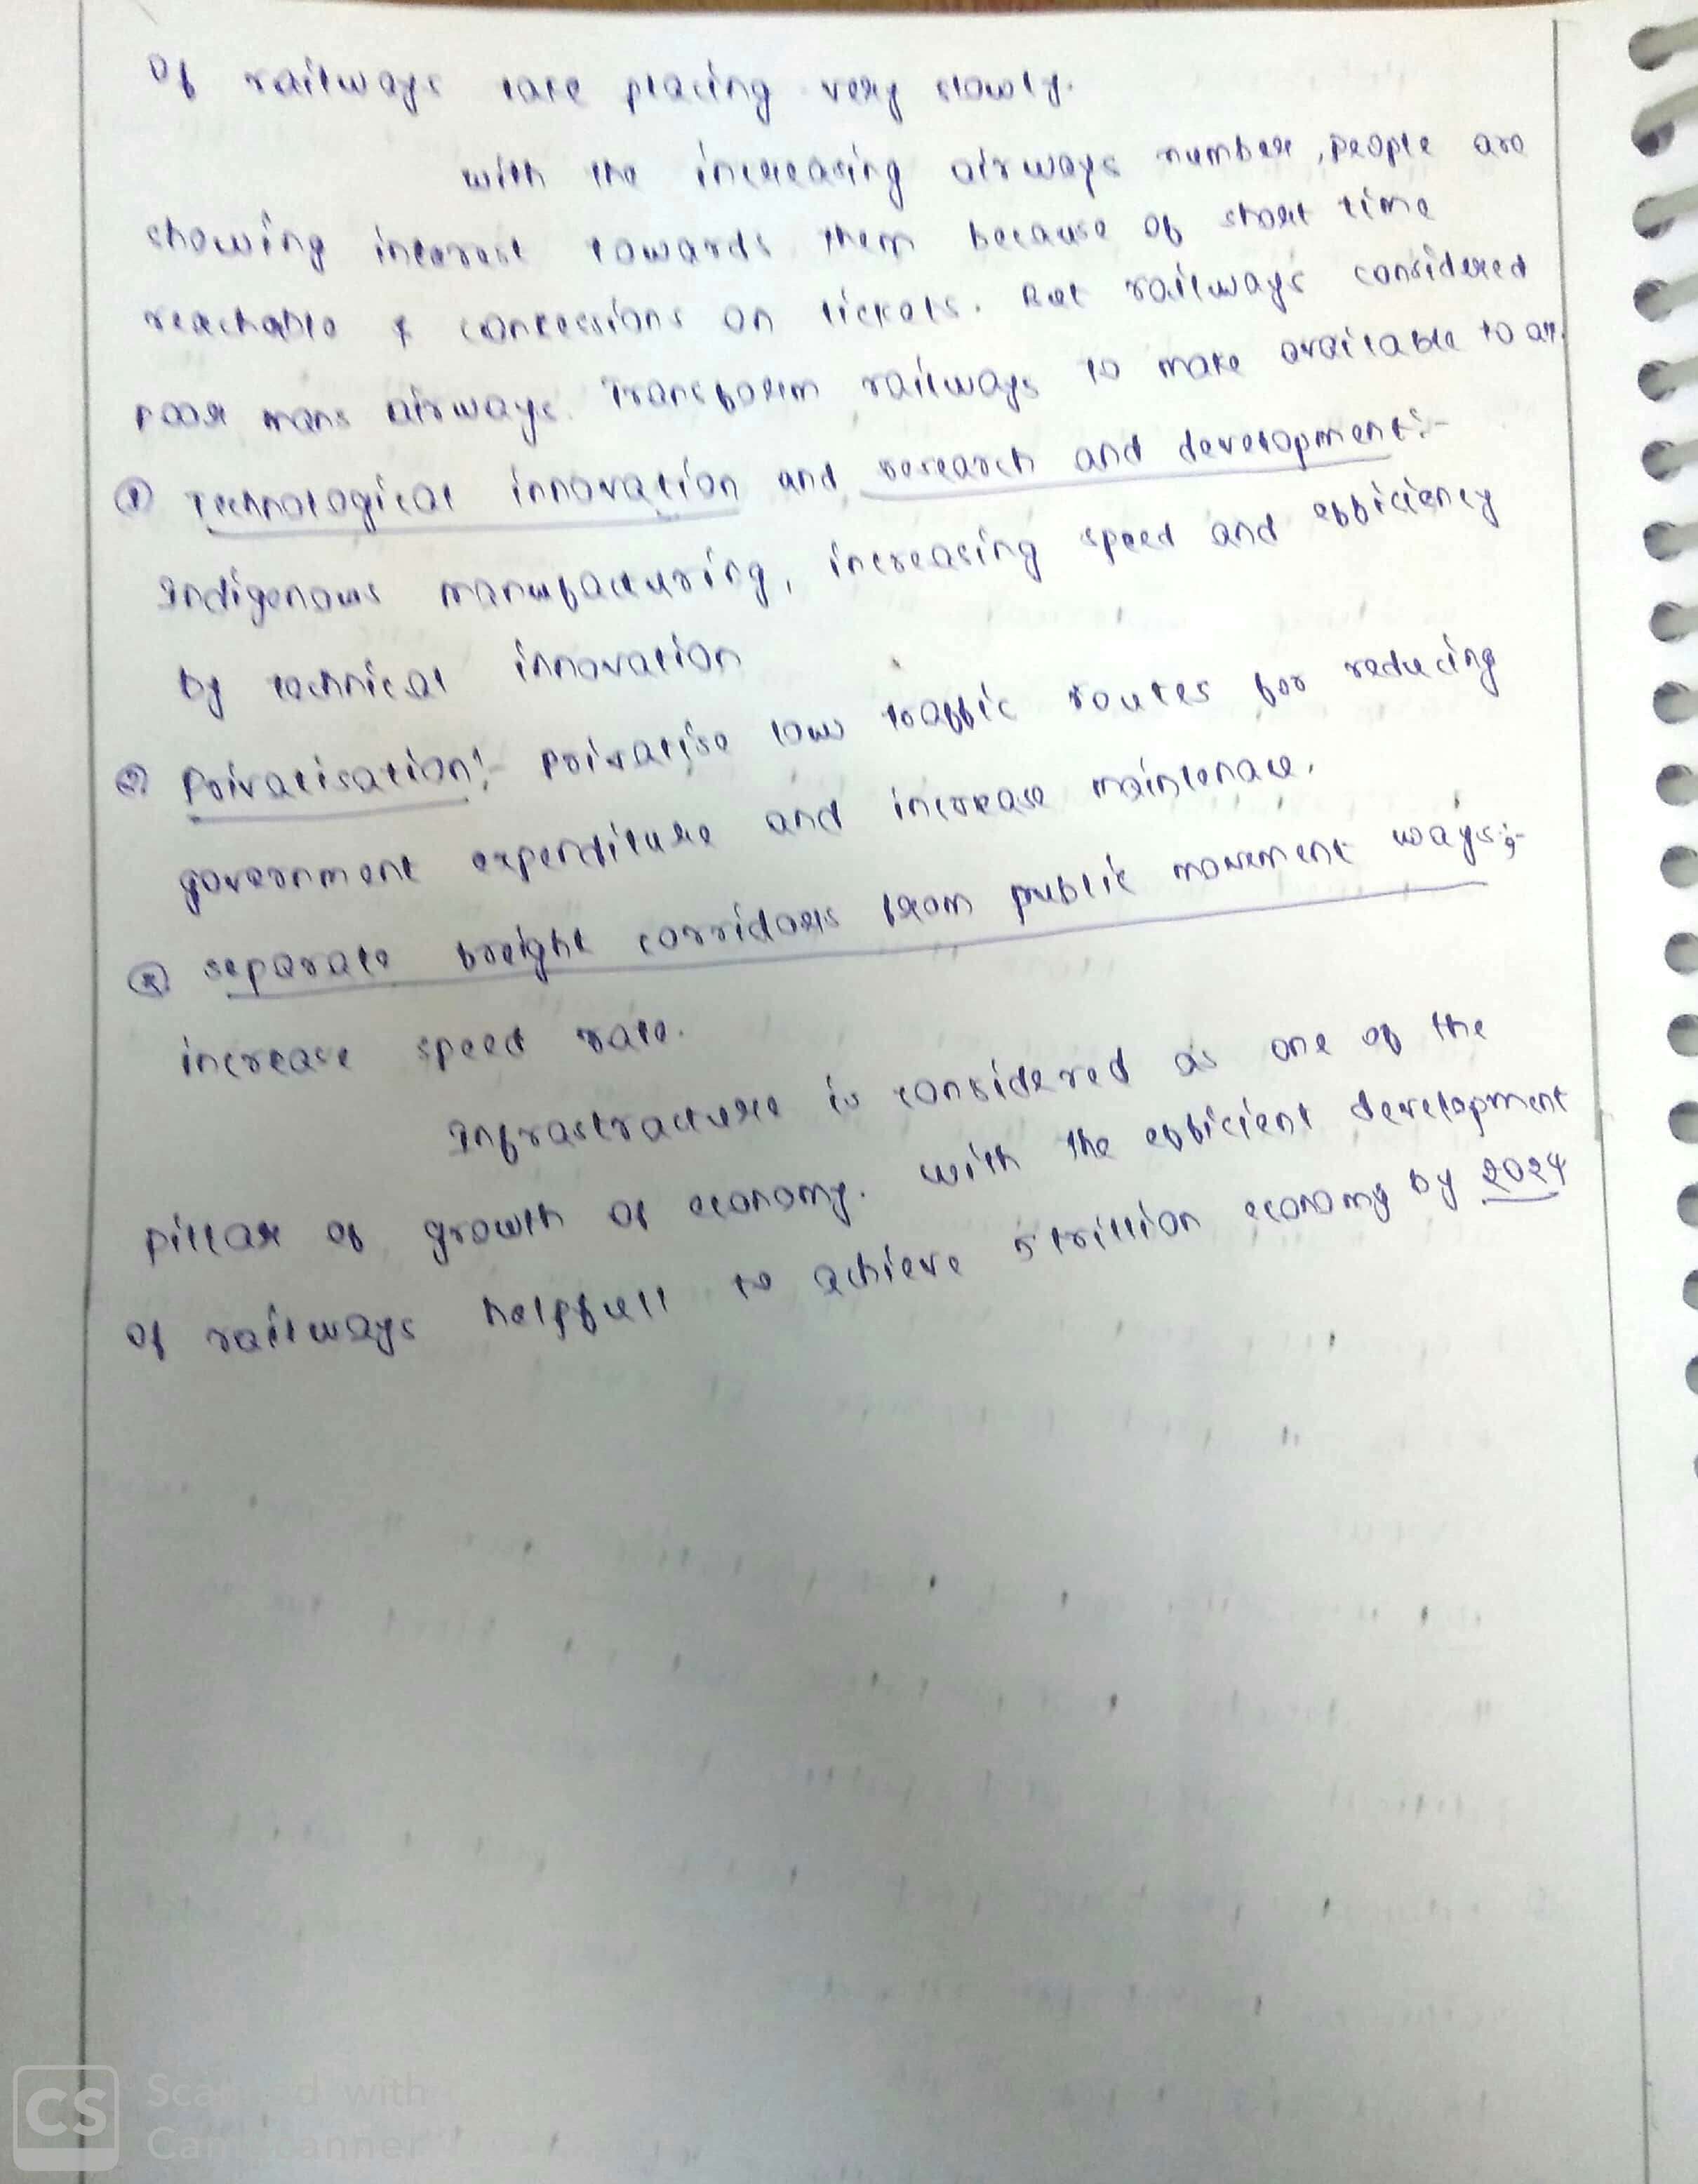 of railways rate placing very slowly.
with the increasing airways number, people are
showing interest towards them because of short time
reachable & concessions on tickets. But railways considered
poor mans airways. Transform railways to make available to all.
① Technological innovation and research and development:-
Indigenous manufacturing, increasing speed and efficiency
by technical innovation
② Privatisation:- privatise low traffic routes for reducing
government expenditure and increase maintenace.
separate freight corridors from public movement ways:-
increase speed rate.
Infrastructure is considered as one of the
pillar of growth of economy. With the efficient development
of railways helpfull to achieve 5 trillion economy by 2024
CS Scanned with
CamScanner